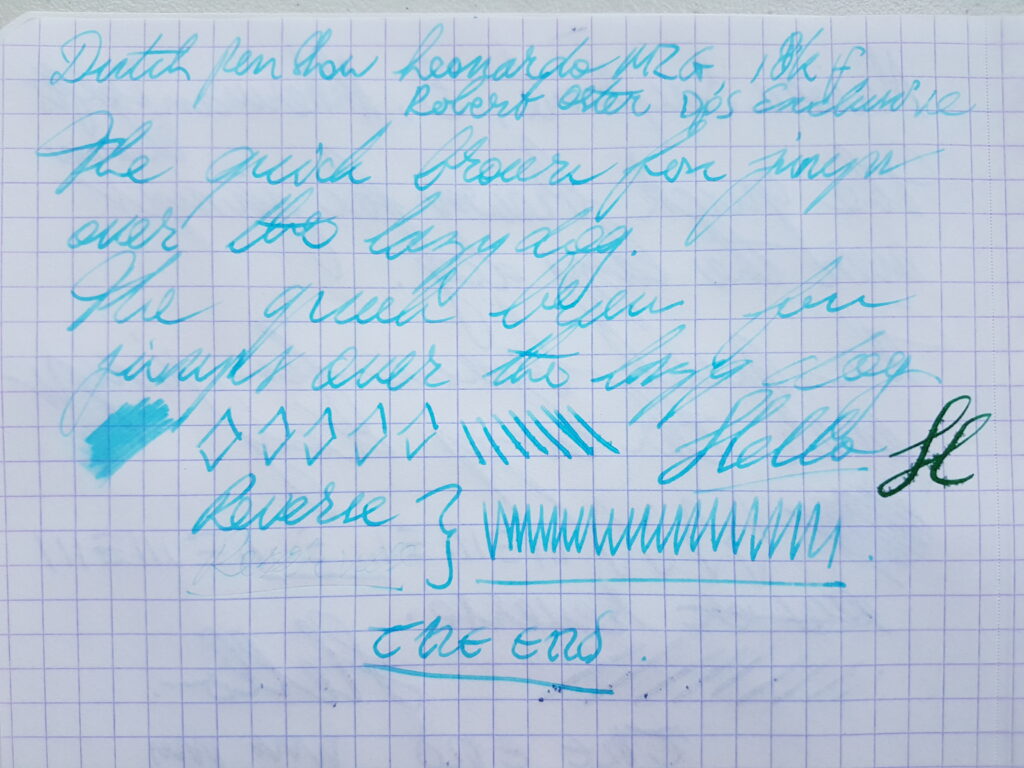 Dutch pen Show Leonardo MZG 18k F
Robert Oster DPS Exclusive
The quick brown fox jumps
over the lazy dog.
The quick brown fox
jumps over the lazy dog
Hello H
Reverse
THE END.